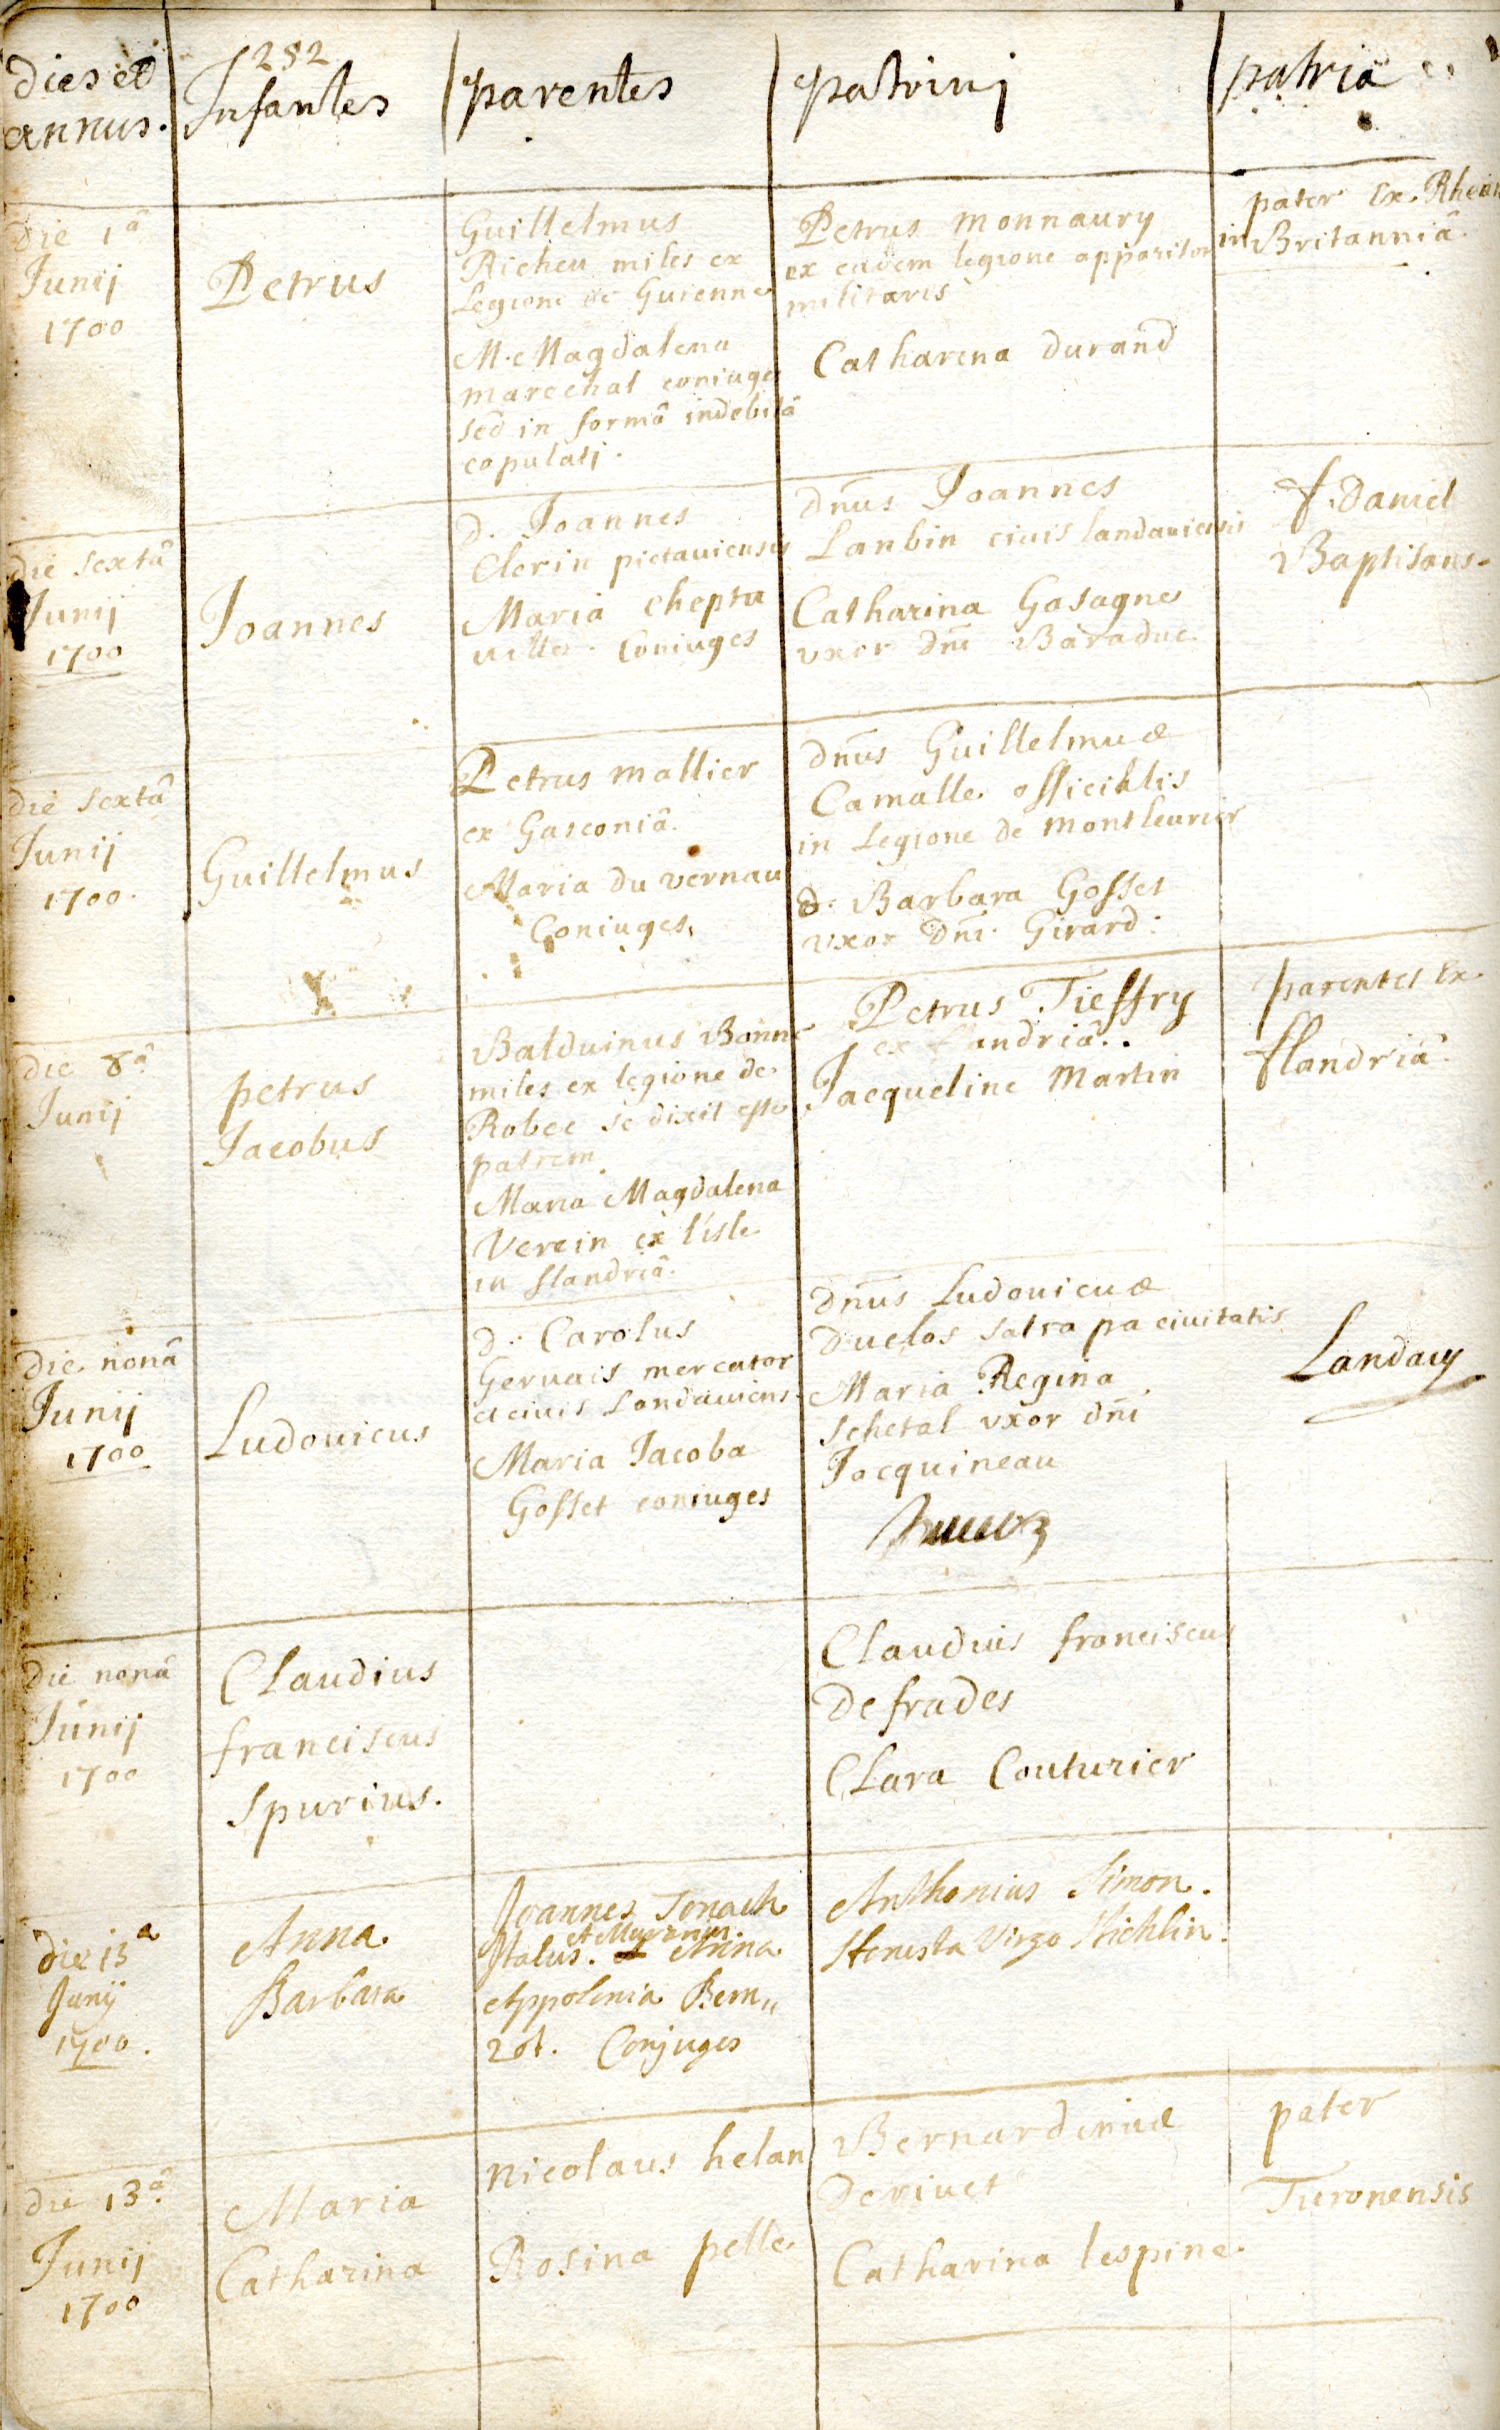 dies et
annus.
282
Infantes
parentes
patrinj
patria
die 1â
Junij
1700
Petrus
Guillelmus
Richeu miles ex
Legione de Guienne
M. Magdalena
marechal coniuges
sed in formâ indebitâ
copulatj.
Petrus monnaury
ex eadem legione apparitor
militaris
Catharina durand
pater ex Rhedon
in Britanniâ.
die sextâ
Junij
1700
Joannes
d. Joannes
Clerin pictauiensis
Maria cheptu
uille. Coniuges
Dn̄us Joannes
Lanbin ciuis landauiensis
Catharina Gasagne
vxor Dn̄i Baraduc
f. Daniel
Baptisans.
die sextâ
Junij
1700.
Guillelmus
Petrus mallier
ex Gasconiâ.
Maria du vernau
Coniuges.
Dn̄us Guillelmus
Camalle officialis
in Legione de montleurier
d. Barbara Gosset
vxor Dn̄i Girard.
die 8â
Junij
petrus
Jacobus
Balduinus Bonne
miles ex legione de
Robec se dixit esse
patrem.
Maria Magdalena
Verein ex l'isle
in flandriâ.
Petrus Tieffry
ex flandriâ..
Jacqueline Martin
parentes ex
flandriâ.
die nonâ
Junij
1700
Ludouicus
d. Carolus
Geruais mercator
et ciuis Landauiens.
Maria Jacoba
Gosset coniuges
Dn̄us Ludouicus
Duclos satrapa ciuitatis
Maria Regina
schetal vxor dn̄i
Jacquineau
Landauj
die nonâ
Junij
1700
Claudius
franciscus
Spurius.
Claudius franciscus
De frades
Clara Couturier
die 13a
Junij
1700.
Anna
Barbara
Joannes Jonach
Italus. et Anna
Appolonia Bem„
rot. Conjuges
Anthonius Simon.
Honesta Virgo Michlin.
die 13â.
Junij
1700
Maria
Catharina
Nicolaus helan
Rosina pelle
Bernardinus
Deriuet
Catharina lespine.
pater
Turonensis